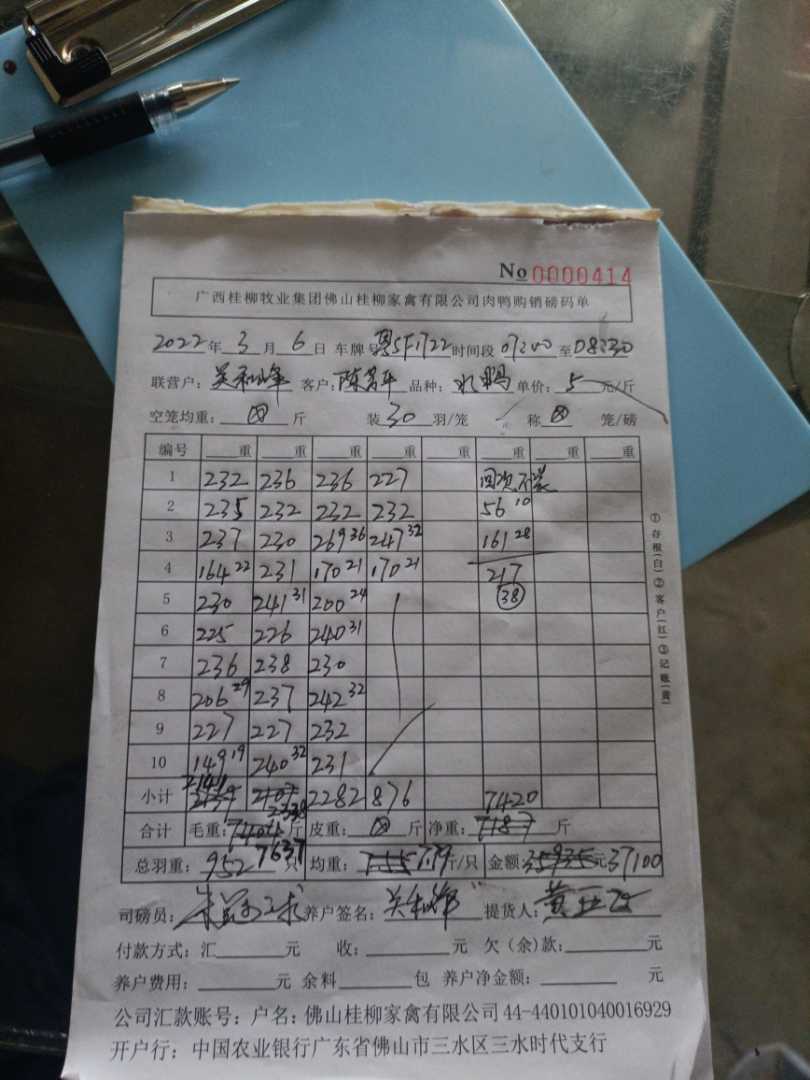 No 0000414
广西桂柳牧业集团佛山桂柳家禽有限公司肉鸭购销磅码单
2022年 3 月 6 日 车牌号 粤 时间段 07:00 至 08:30
联营户: 客户: 品种: 水鸭 单价: 5 元/斤
空笼均重: 斤 装 30 羽/笼 称 笼/磅
编号 重 重 重 重 重 重 重 重
1 232 236 236 227
2 235 232 232 232 56 10
3 237 230 269 36 247 32 161 28
4 164 22 231 170 21 170 21 217
5 230 241 31 200 24 38
6 225 226 240 31
7 236 238 230
8 206 29 237 242 32
9 227 227 232
10 149 19 240 32 231
小计 2141 2338 2282 876 7420
合计 毛重: 斤 皮重: 斤 净重: 7187 斤
总羽重: 952 7637 只 均重: 斤/只 金额 35935 元 37100
司磅员: 养户签名: 提货人:
付款方式: 汇 元 收: 元 欠(余)款: 元
养户费用: 元 余料 包 养户净金额: 元
公司汇款账号: 户名: 佛山桂柳家禽有限公司 44-440101040016929
开户行: 中国农业银行广东省佛山市三水区三水时代支行
①存根(白)②客户(红)③记账(黄)